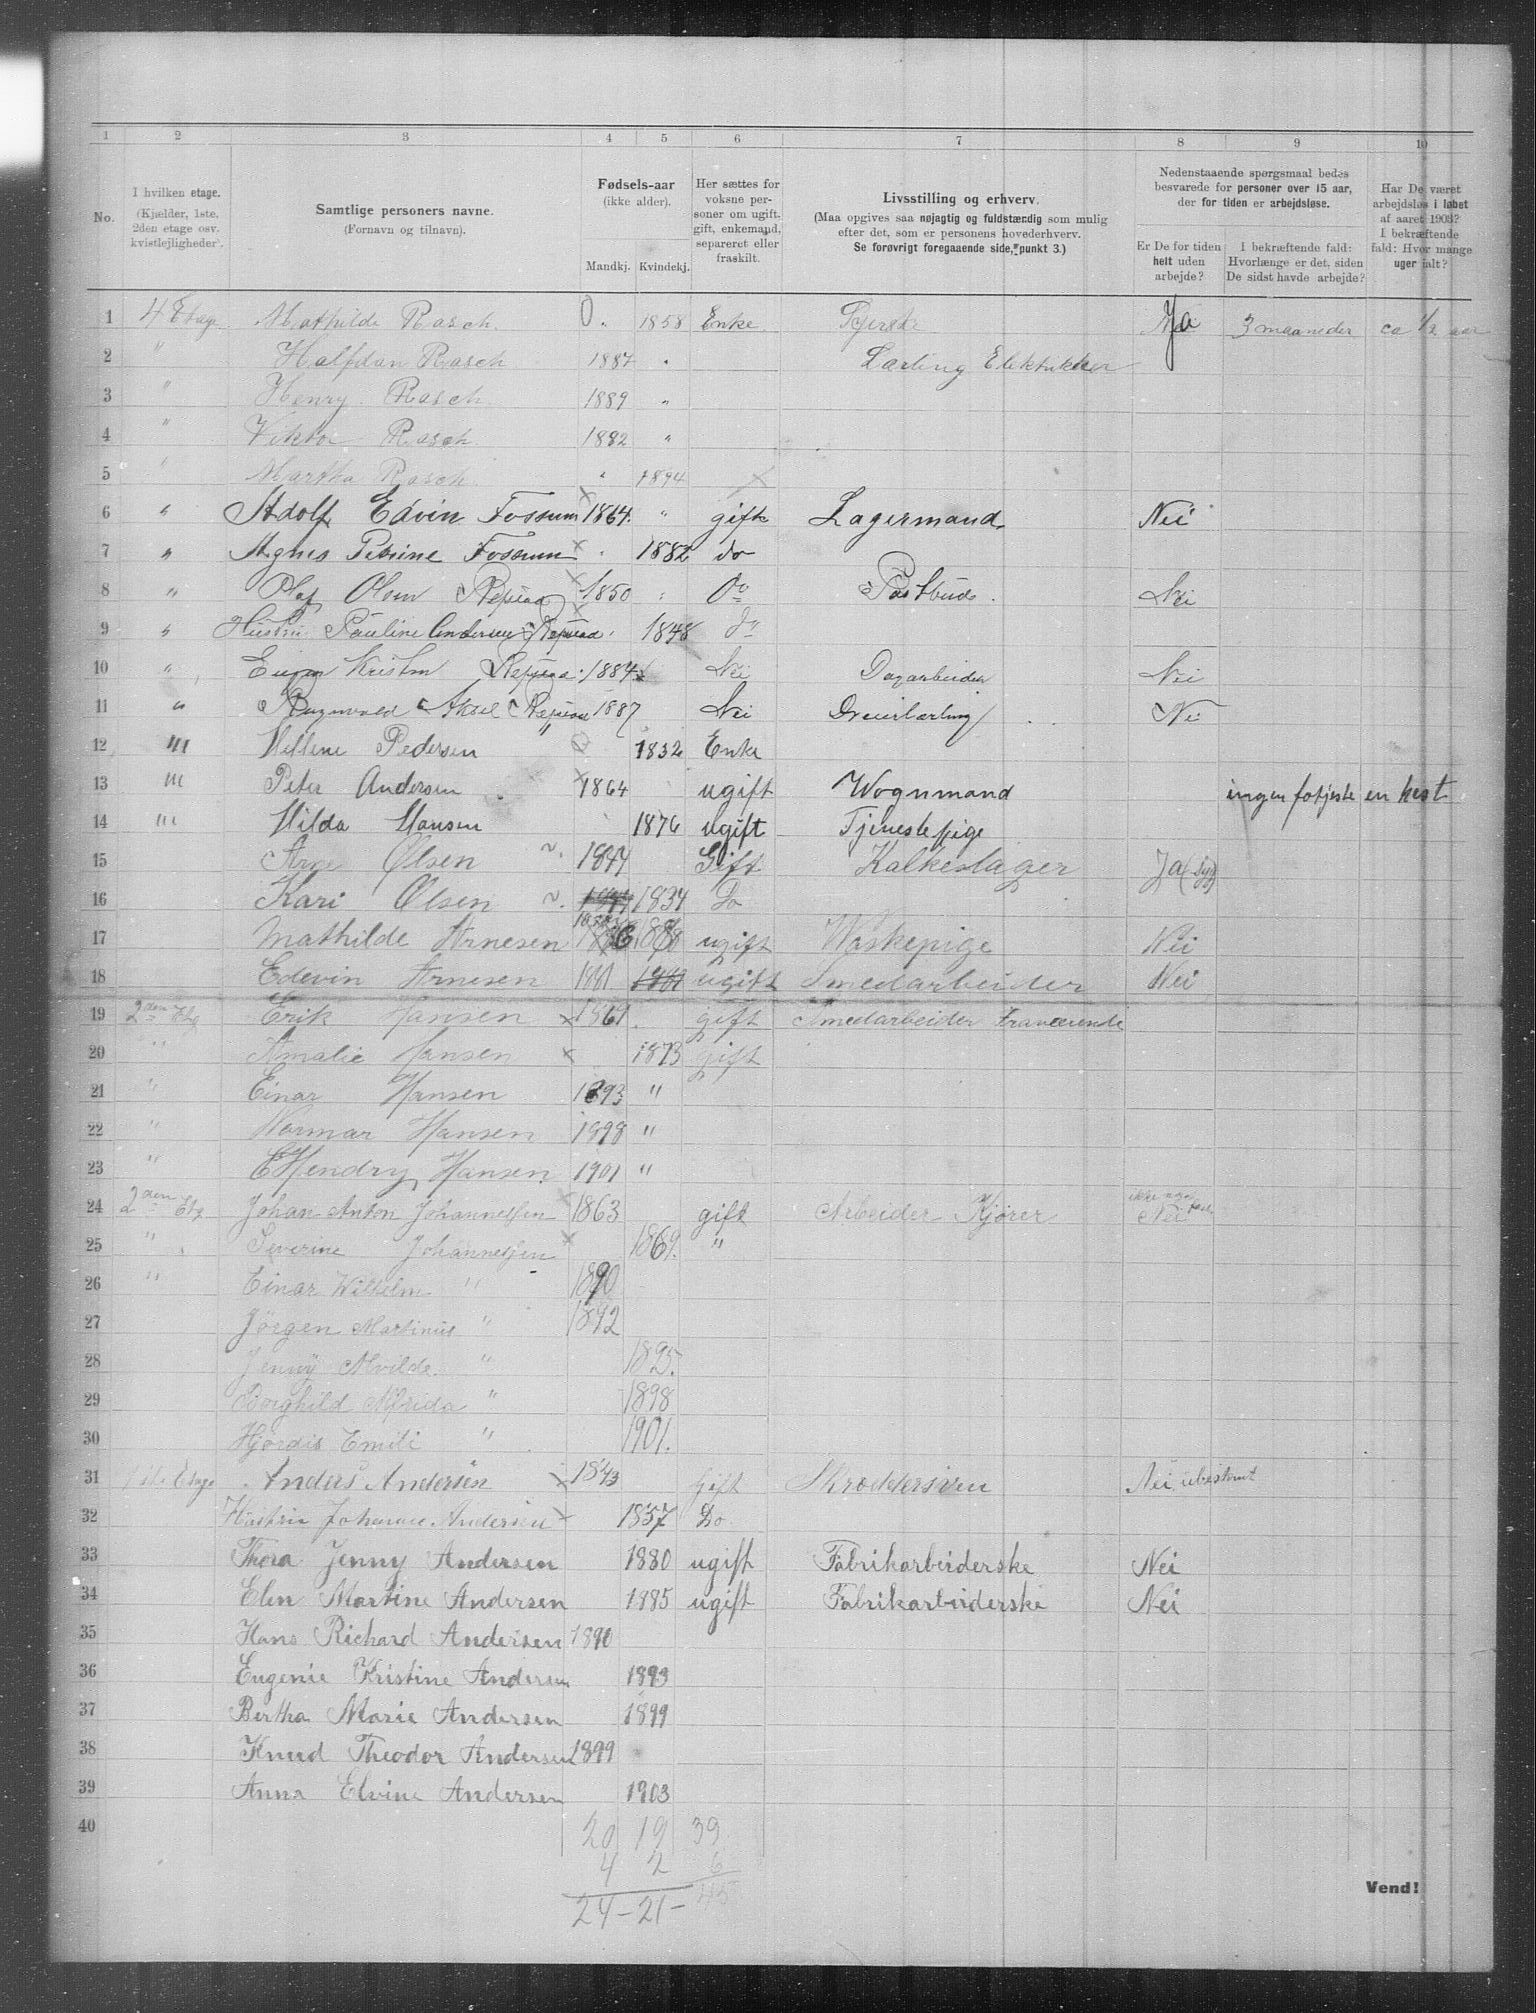 1 2 3 4 5 6 7 8 9 10
No.
I hvilken etage.
(Kjælder, 1ste,
2den etage osv.
kvistlejligheder).
Samtlige personers navne.
(Fornavn og tilnavn).
Fødsels-aar
(ikke alder).
Mandkj. Kvindekj.
Her sættes for
voksne per-
soner om ugift,
gift, enkemand,
separeret eller
fraskilt.
Livsstilling og erhverv.
(Maa opgives saa nøjagtig og fuldstændig som mulig
efter det, som er personens hovederhverv.
Se forøvrigt foregaaende side, punkt 3.)
Nedenstaaende spørgsmaal bedes
besvarede for personer over 15 aar,
der for tiden er arbejdsløse.
Er De for tiden
helt uden
arbejde?
I bekræftende fald:
Hvorlænge er det, siden
De sidst havde arbejde?
Har De været
arbejdsløs i løbet
af aaret 1903?
I bekræftende
fald: Hvor mange
uger ialt?
1 4 Etage Mathilde Rasch 0 . 1858 Enke Syerske Ja 3 maaneder ca 1/2 aar
2 " Halfdan Rasch 1887 " Lærling Elektriker
3 " Henry Rasch 1889 "
4 " Viktor Rasch 1882 "
5 " Martha Rasch " 1894
6 " Adolf Edvin Fossum 1864 " gift Lagermand Nei
7 " Agnes Petrine Fossum " 1882 do
8 " Olaf Olsen 1850 " Do Postbud Nei
9 " Hustru Pauline Andersen 1848 Do
10 " Kristen 1884 Nei Dagarbeider Nei
11 " Ragnvald Aksel 1887 Nei Dreierlærling Nei
12 " Hellene Pedersen " 1832 Enke
13 " Peter Andersen 1864 ugift Wognmand ingen fotjeste en hest
14 " Hilda Hansen 1876 Ugift Tjenestepige
15 Arne Olsen 1847 Gift Kalkeslager Ja (syg)
16 Kari Olsen 1834 Do
17 Mathilde Arnesen ugift Waskepige Nei
18 Edevin Arnesen 1881 ugift Smedarbeider Nei
19 2den Etg Erik Hansen 1867 gift Smedarbeider Fraværende
20 " Amalie Hansen 1873 gift
21 " Einar Hansen 1893 "
22 " Normar Hansen 1898 "
23 " Hendry Hansen 1901 "
24 2den Etg Johan Anton Johannessen 1863 gift Arbeider Kjører Nei
25 " Severine Johannessen 1869. "
26 " Einar Wilhelm " 1890
27 Jörgen Martinus " 1892
28 Jenny Alvilde " 1895.
29 Borghild Alfrida " 1898
30 Hjördis Emili " 1901.
31 1ste Etage Anders Andersen 1843 Gift Skreddersven Nei, ubestemt
32 Hustru Johanne Andersen 1857 Do
33 Thora Jenny Andersen 1880 ugift Fabrikarbeiderske Nei
34 Elen Martine Andersen 1885 ugift Fabrikarbeiderske Nei
35 Hans Richard Andersen 1890
36 Eugenie Kristine Andersen 1893
37 Bertha Marie Andersen 1899
38 Knud Theodor Andersen 1899
39 Anna Elvine Andersen 1903
40 20 19 39
4 2 6
24 - 21 - 45
Vend!